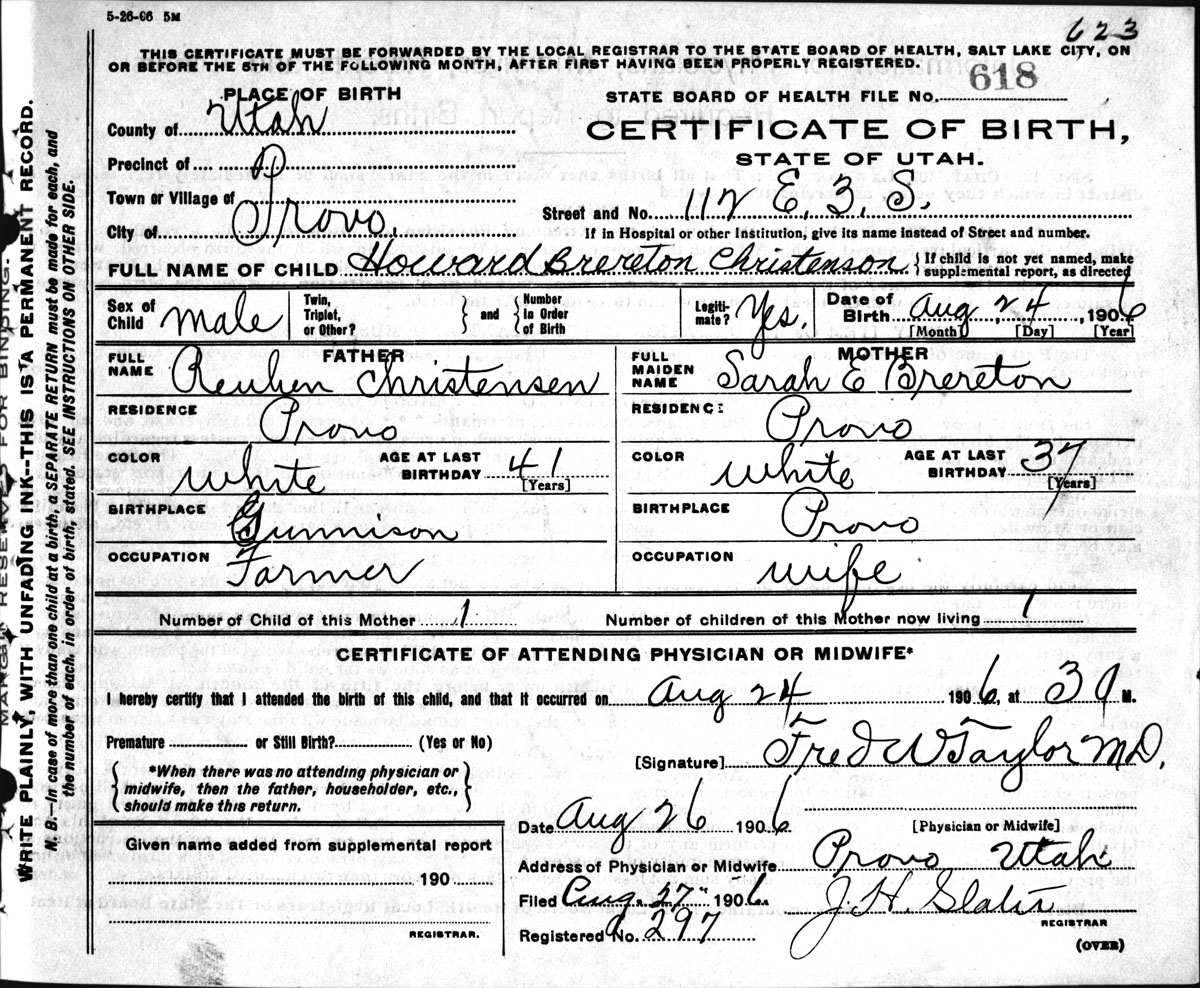 5-26-06 5M
623
THIS CERTIFICATE MUST BE FORWARDED BY THE LOCAL REGISTRAR TO THE STATE BOARD OF HEALTH, SALT LAKE CITY, ON
OR BEFORE THE 5TH OF THE FOLLOWING MONTH, AFTER FIRST HAVING BEEN PROPERLY REGISTERED.
PLACE OF BIRTH
STATE BOARD OF HEALTH FILE No. 618
County of Utah
CERTIFICATE OF BIRTH,
STATE OF UTAH.
Precinct of
Town or Village of
Street and No. 112 E. 3. S.
City of Provo.
If in Hospital or other Institution, give its name instead of Street and number.
FULL NAME OF CHILD Howard Brereton Christenson { If child is not yet named, make
supplemental report, as directed
Sex of Child Male
Twin, Triplet, or Other?
{ and }
Number in Order of Birth
Legiti-mate? Yes.
Date of Birth Aug, 24, 1906
[Month] [Day] [Year]
FATHER
FULL NAME Reuben Christensen
MOTHER
FULL MAIDEN NAME Sarah E Brereton
RESIDENCE Provo
RESIDENCE Provo
COLOR White AGE AT LAST BIRTHDAY 41 [Years]
COLOR White AGE AT LAST BIRTHDAY 37 [Years]
BIRTHPLACE Gunnison
BIRTHPLACE Provo
OCCUPATION Farmer
OCCUPATION wife
Number of Child of this Mother 1 Number of children of this Mother now living 1
CERTIFICATE OF ATTENDING PHYSICIAN OR MIDWIFE*
I hereby certify that I attended the birth of this child, and that it occurred on Aug 24 1906, at 39 M.
Premature or Still Birth? (Yes or No)
[Signature] Fred W Taylor MD,
{ *When there was no attending physician or
midwife, then the father, householder, etc.,
should make this return. }
Date Aug 26 1906.
[Physician or Midwife]
Given name added from supplemental report
190
REGISTRAR.
Address of Physician or Midwife Provo Utah
Filed Aug. 27" 1906.
J. H. Slater
REGISTRAR
Registered No. 297
(OVER)
MARGIN RESERVED FOR BINDING.
WRITE PLAINLY WITH UNFADING INK—THIS IS A PERMANENT RECORD.
N. B.—In case of more than one child at a birth, a SEPARATE RETURN must be made for each, and
the number of each, in order of birth, stated. SEE INSTRUCTIONS ON OTHER SIDE.